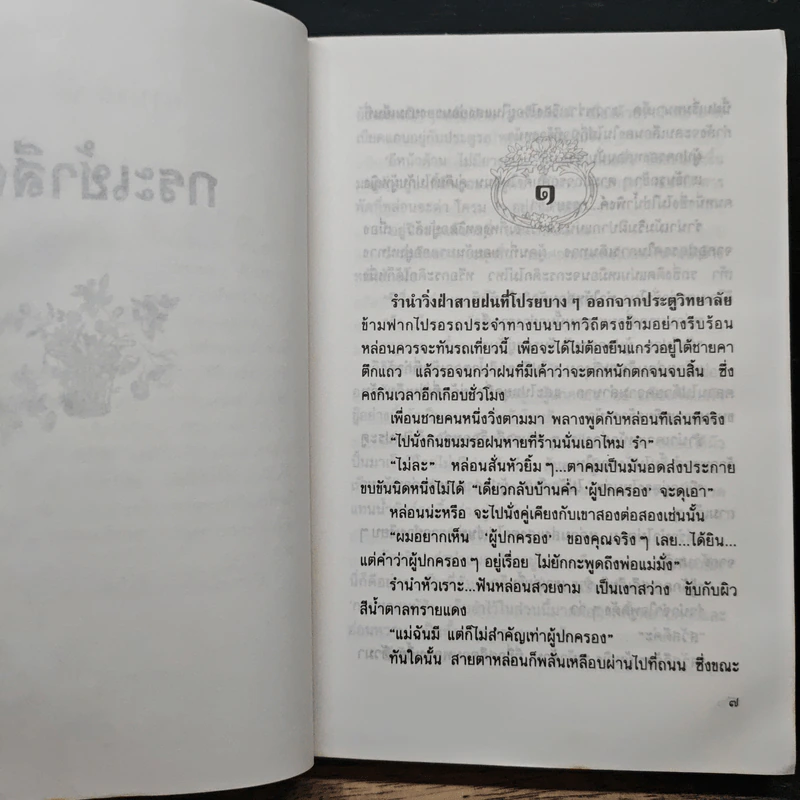 กระเช้าสี
๑
รำนำวิ่งฝ่าสายฝนที่โปรยบาง ๆ ออกจากประตูวิทยาลัย
ข้ามฟากไปรอรถประจำทางบนบาทวิถีตรงข้ามอย่างรีบร้อน
หล่อนควรจะทันรถเที่ยวนี้ เพื่อจะได้ไม่ต้องยืนแกร่วอยู่ใต้ชายคา
ตึกแถว แล้วรอจนกว่าฝนที่มีเค้าว่าจะตกหนักตกจนจบสิ้น ซึ่ง
คงกินเวลาอีกเกือบชั่วโมง
เพื่อนชายคนหนึ่งวิ่งตามมา พลางพูดกับหล่อนทีเล่นทีจริง
“ไปนั่งกินขนมรอฝนหายที่ร้านนั่นเอาไหม รำ”
“ไม่ละ” หล่อนสั่นหัวยิ้ม ๆ...ตาคมเป็นมันอดส่งประกาย
ขบขันนิดหนึ่งไม่ได้ “เดี๋ยวกลับบ้านค่ำ ‘ผู้ปกครอง’ จะดุเอา”
หล่อนน่ะหรือ จะไปนั่งคู่เคียงกับเขาสองต่อสองเช่นนั้น
“ผมอยากเห็น ‘ผู้ปกครอง’ ของคุณจริง ๆ เลย...ได้ยิน...
แต่คำว่าผู้ปกครอง ๆ อยู่เรื่อย ไม่ยักกะพูดถึงพ่อแม่มั่ง”
รำนำหัวเราะ...ฟันหล่อนสวยงาม เป็นเงาสว่าง ขับกับผิว
สีน้ำตาลทรายแดง
“แม่ฉันมี แต่ก็ไม่สำคัญเท่าผู้ปกครอง”
ทันใดนั้น สายตาหล่อนก็พลันเหลือบผ่านไปที่ถนน ซึ่งขณะ
๗